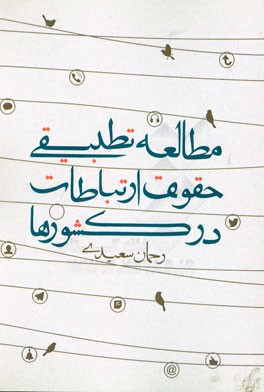 مطالعه تطبیقی
حقوق ارتباطات
در کشورها
رحمان سعیدی